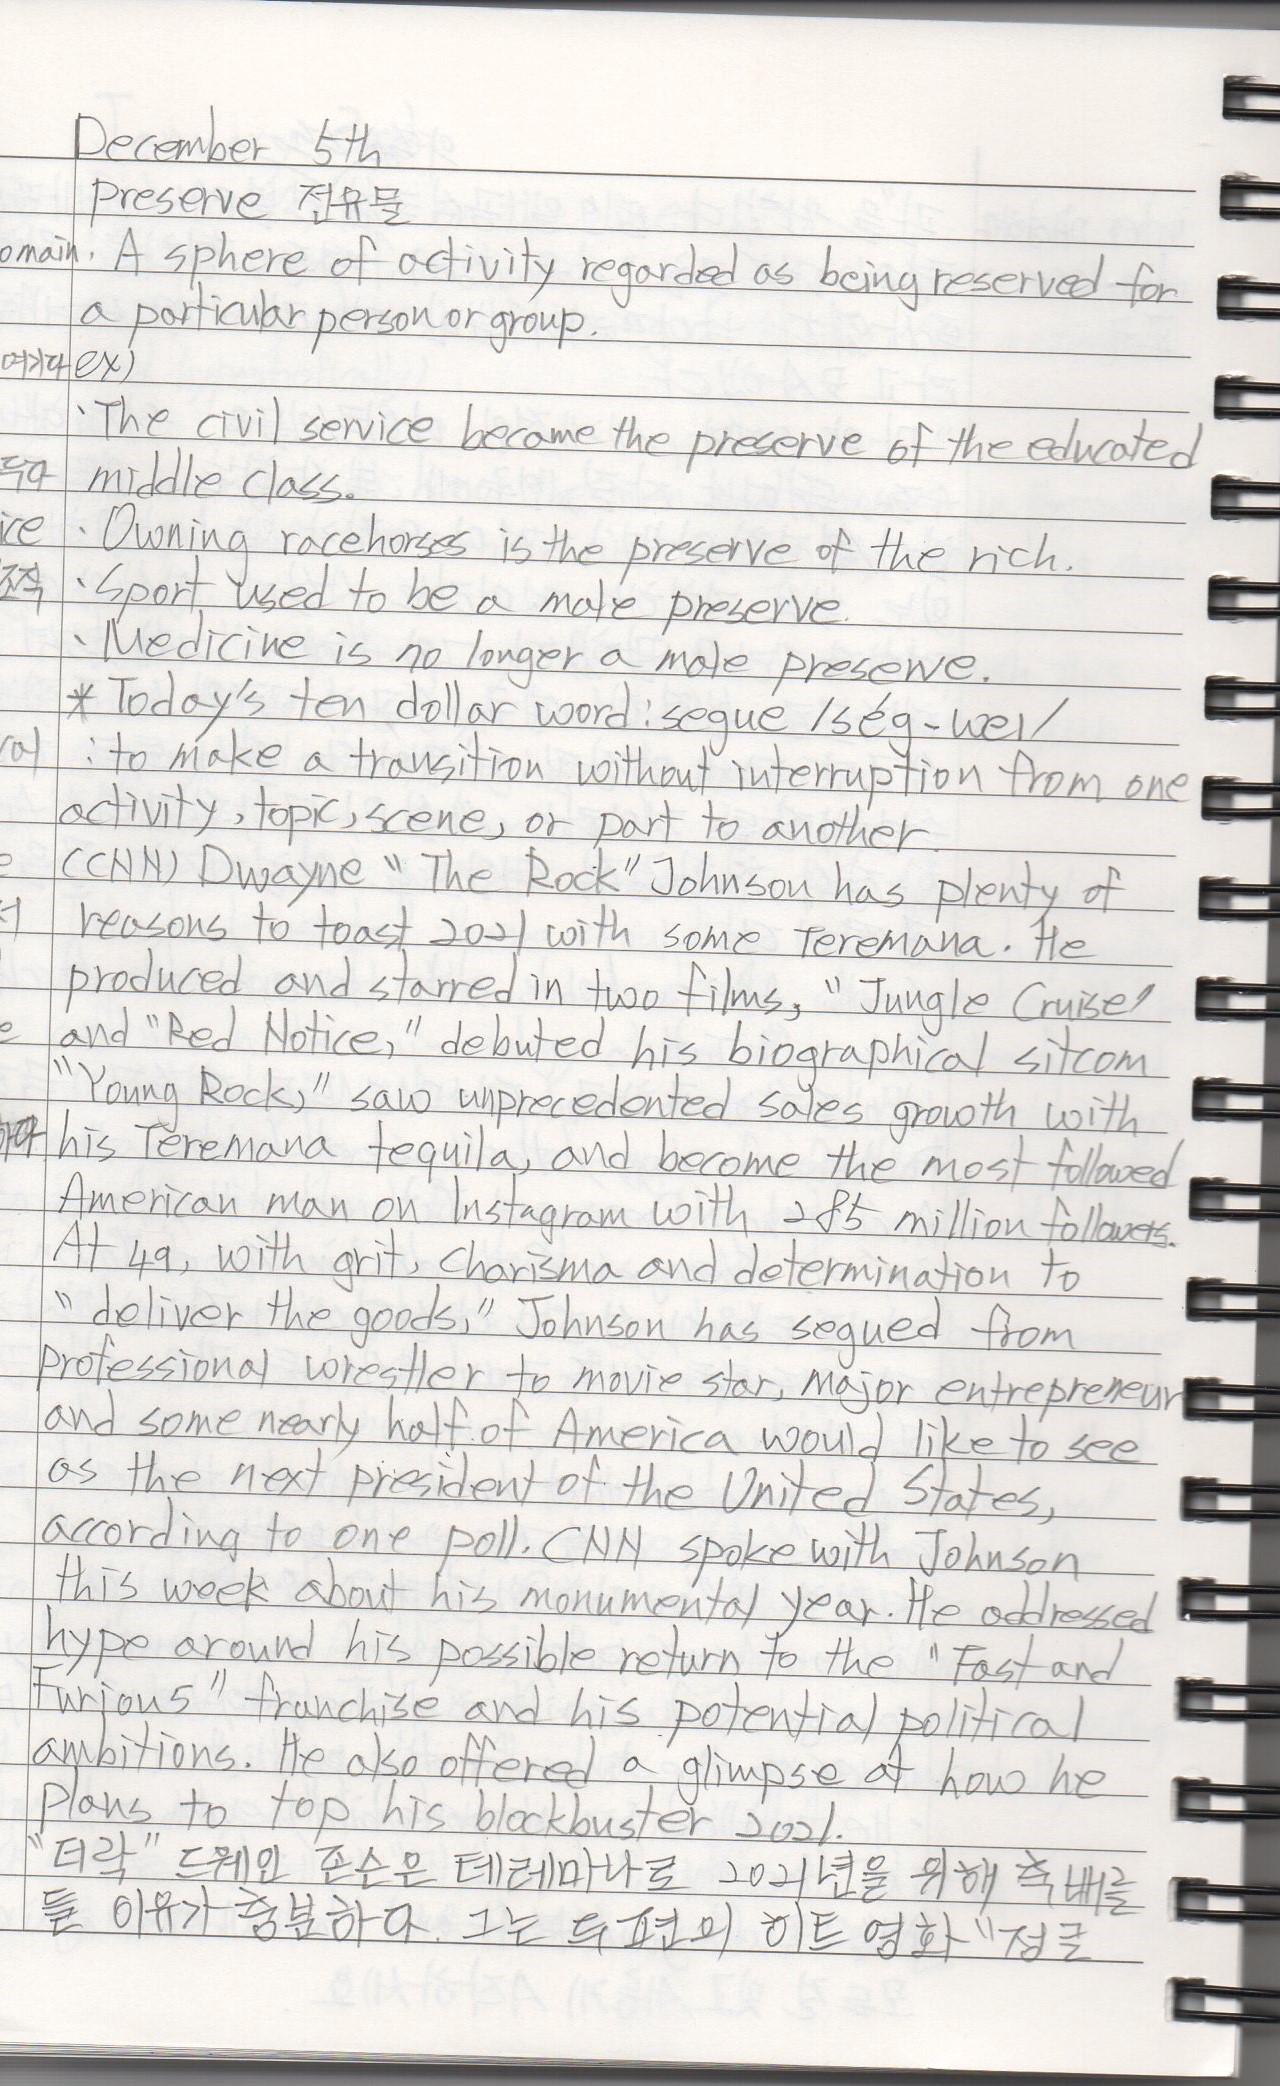 December 5th
preserve 전유물
omain. A sphere of activity regarded as being reserved for
a particular person or group.
여기다 ex)
· The civil service became the preserve of the educated
두다 middle class.
ice · Owning racehorses is the preserve of the rich.
조직 · Sport used to be a male preserve.
· Medicine is no longer a male preserve.
* Today's ten dollar word : segue /ség-wei/
ral : to make a transition without interruption from one
activity, topic, scene, or part to another.
e (CNN) Dwayne "The Rock" Johnson has plenty of
reasons to toast 2021 with some Teremana. He
produced and starred in two films, "Jungle Cruise"
e and "Red Notice," debuted his biographical sitcom
"Young Rock," saw unprecedented sales growth with
하다 his Teremana tequila, and become the most followed
American man on Instagram with 285 million followers.
At 49, with grit, charisma and determination to
"deliver the goods," Johnson has segued from
professional wrestler to movie star, major entrepreneur
and some nearly half of America would like to see
as the next president of the United States,
according to one poll. CNN spoke with Johnson
this week about his monumental year. He addressed
hype around his possible return to the "Fast and
Furious" franchise and his potential political
ambitions. He also offered a glimpse at how he
plans to top his blockbuster 2021.
"더락" 드웨인 존슨은 테레마나로 2021년을 위해 축배를
들 이유가 충분하다. 그는 두 편의 히트 영화 "정글